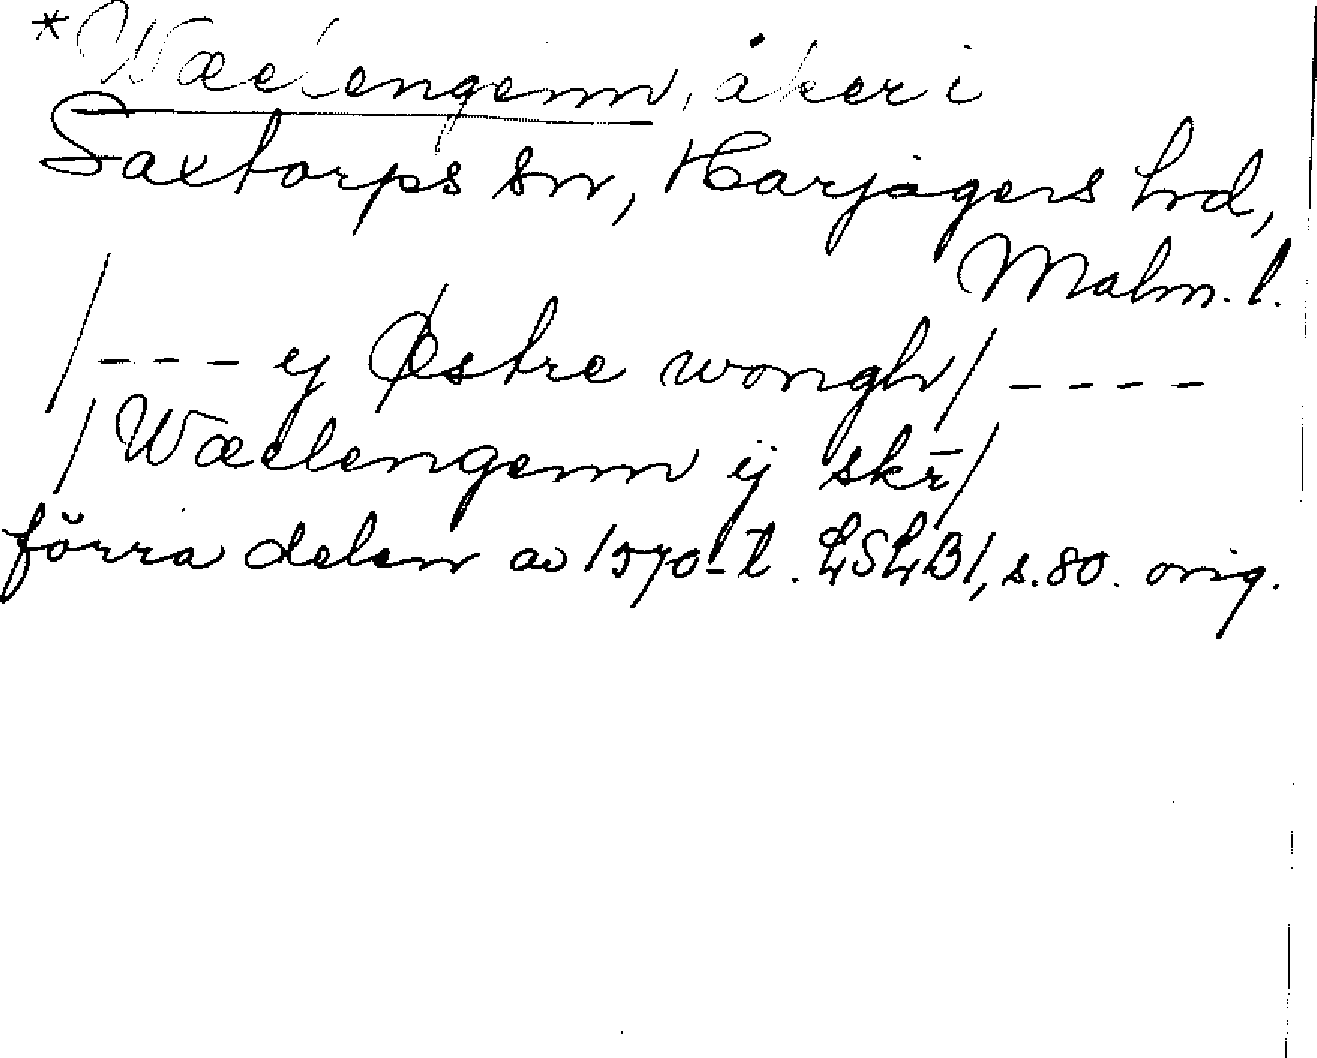 *Wælengenn, åker i
Saxtorps sn, Harjagers hrd,
Malm. l.
/--- ej Østre wongh/ ----
/Wælengenn ij skr̄/
förra delen av 1570-t. LSLB1, s.80. orig.